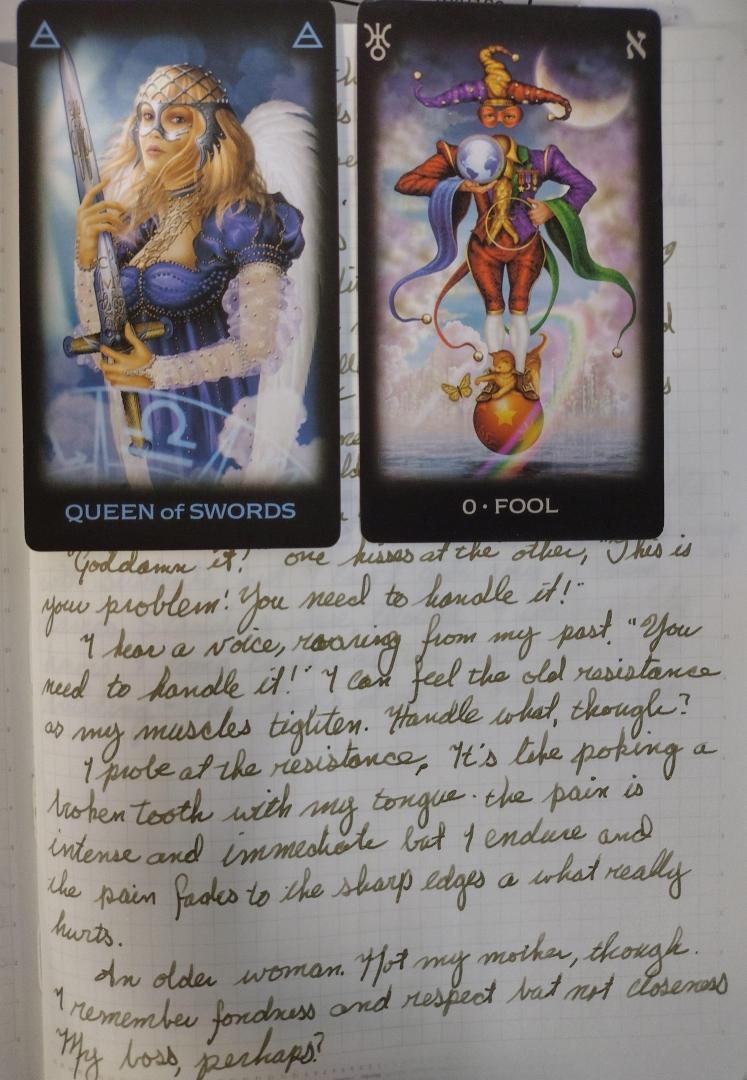 QUEEN of SWORDS
0 • FOOL
"Goddamn it!" one hisses at the other, "This is
your problem! You need to handle it!"
I hear a voice, roaring from my past. "You
need to handle it!" I can feel the old resistance
as my muscles tighten. Handle what, though?
I probe at the resistance. It's like poking a
broken tooth with my tongue. the pain is
intense and immediate but I endure and
the pain fades to the sharp edges a what really
hurts.
An older woman. Not my mother, though.
I remember fondness and respect but not closeness
My boss, perhaps?